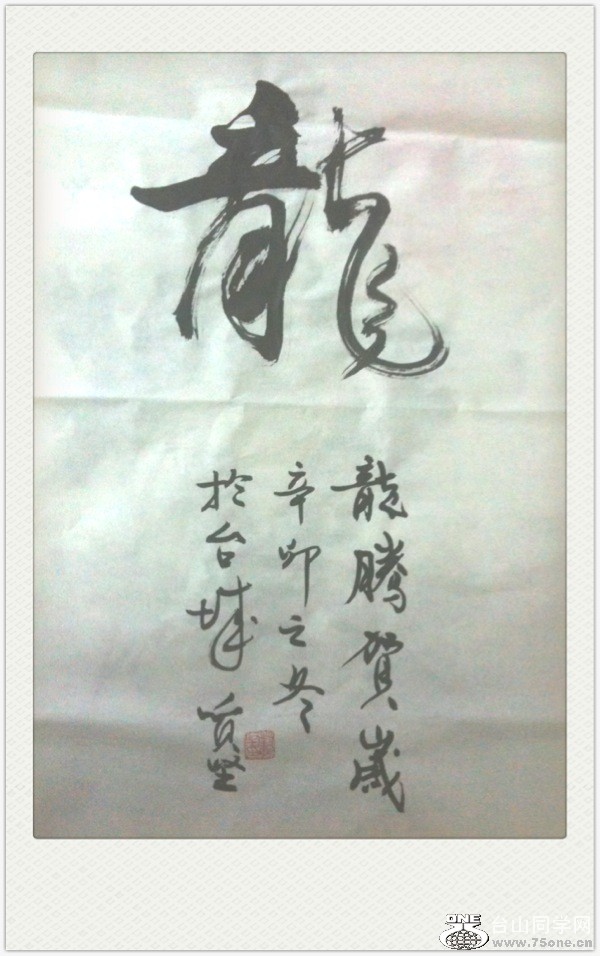 龍
龍騰賀歲
辛卯之冬
於台城
ONE
台山同学网
www.75one.cn